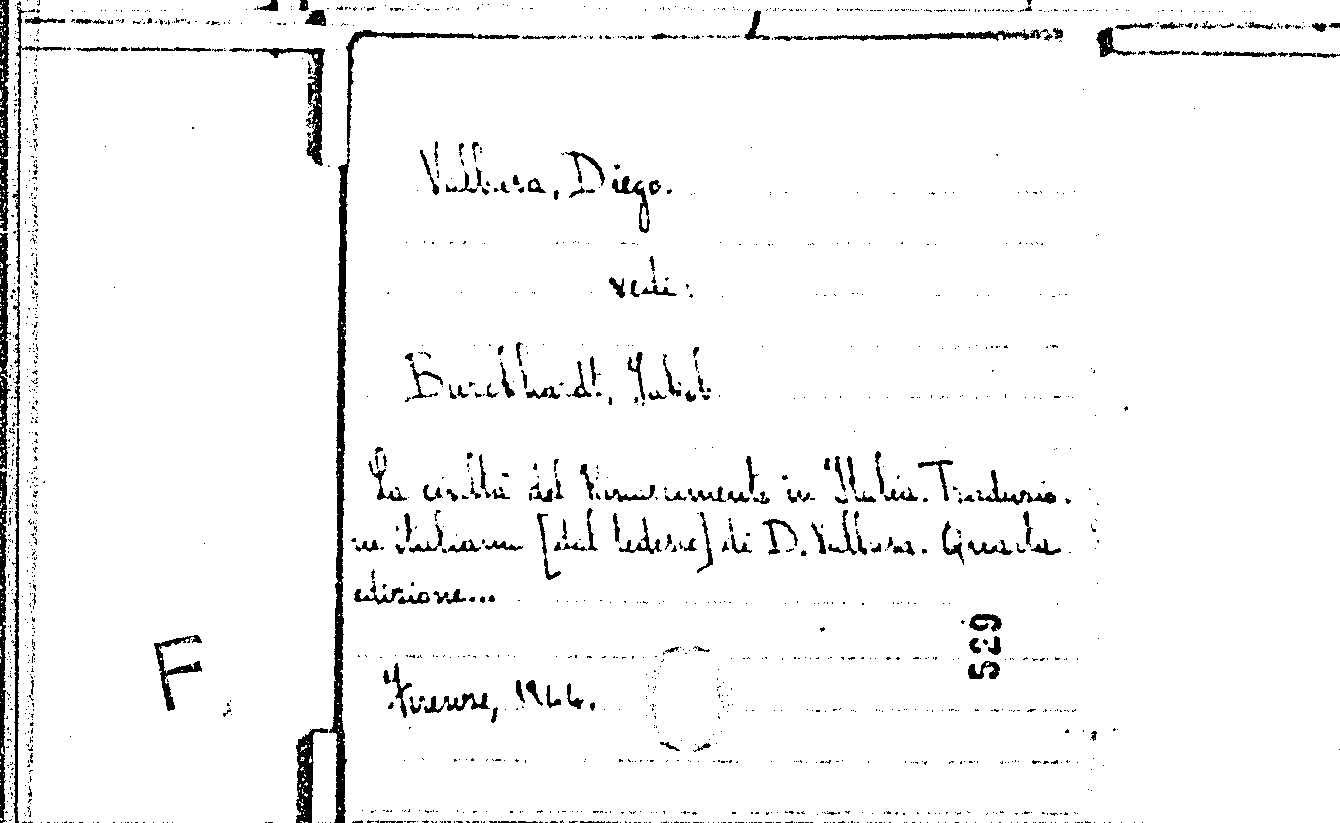 Valbusa, Diego.
vedi:
Burckhardt, Jakob
La civiltà del Rinascimento in Italia. Traduzio.
ne italiana [dal tedesco] di D. Valbusa. Quarta
edizione...
Firenze, 1944.
529
F